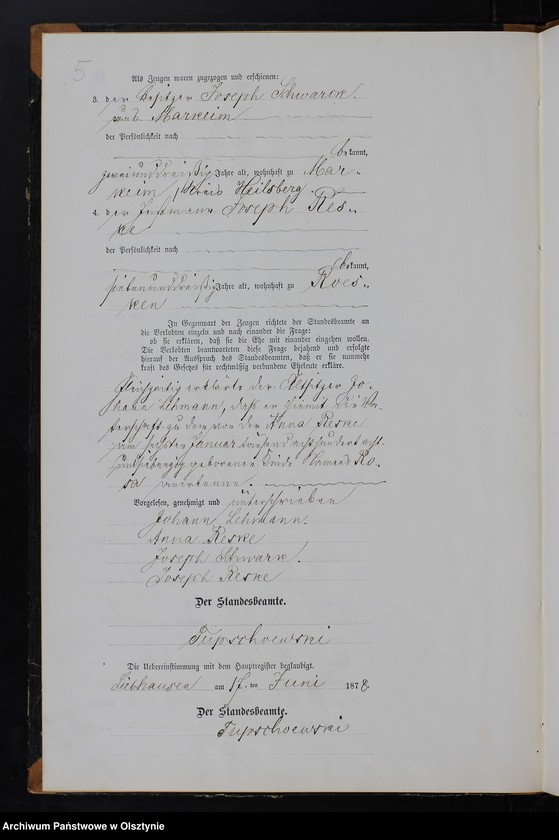 5
Als Zeugen waren zugezogen und erschienen:
3. der Besitzer Joseph Schwarck
aus Markeim
der Persönlichkeit nach
bekannt,
zweiunddreißig Jahre alt, wohnhaft zu Mar-
keim, Kreis Heilsberg.
4. der Joseph Res-
ke
der Persönlichkeit nach
bekannt,
siebenunddreißig Jahre alt, wohnhaft zu Roes-
ken
In Gegenwart der Zeugen richtete der Standesbeamte an
die Verlobten einzeln und nach einander die Frage:
ob sie erklären, daß sie die Ehe mit einander eingehen wollen.
Die Verlobten beantworteten diese Frage bejahend und erfolgte
hierauf der Ausspruch des Standesbeamten, daß er sie nunmehr
kraft des Gesetzes für rechtmäßig verbundene Eheleute erkläre.
Gleichzeitig erklärte der Altsitzer Jo-
hann Lehmann, daß er hiermit die Va-
terschaft zu dem von der Anna Reske
am sechsten Januar tausend achthundert acht
und siebenzig geborenen Kinde Namens Ro-
sa anerkenne.
Vorgelesen, genehmigt und unterschrieben
Johann Lehmann.
Anna Reske
Joseph Schwark.
Joseph Reske
Der Standesbeamte.
Tupschoewski
Die Uebereinstimmung mit dem Hauptregister beglaubigt.
am 17. ten Juni 1878
Der Standesbeamte.
Tupschoewski
Archiwum Państwowe w Olsztynie